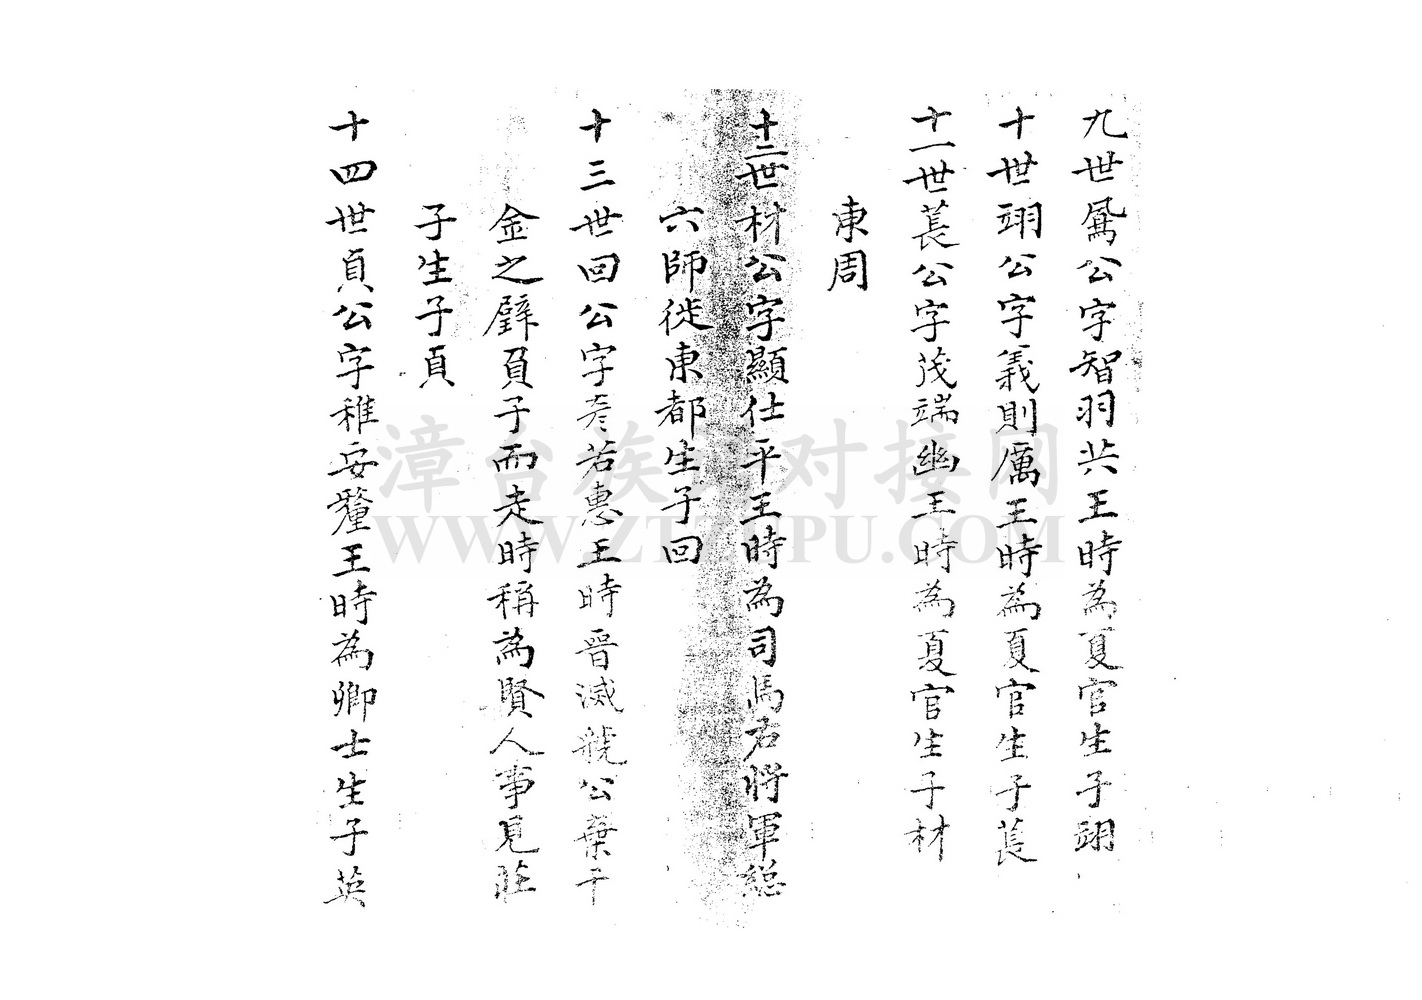 九世鳯公字智羽共王時為夏官生子翊
十世翊公字義則厲王時為夏官生子萇
十一世萇公字茂端幽王時為夏官生子材
東周
十二世材公字顯仕平王時為司馬右將軍總
六師徙東都生子回
十三世回公字彥若惠王時晉滅虢公棄千
金之璧負子而走時稱為賢人事見莊
子生子貞
十四世貞公字稚安釐王時為卿士生子英
漳台族谱对接网
WWW.ZTZUPU.COM